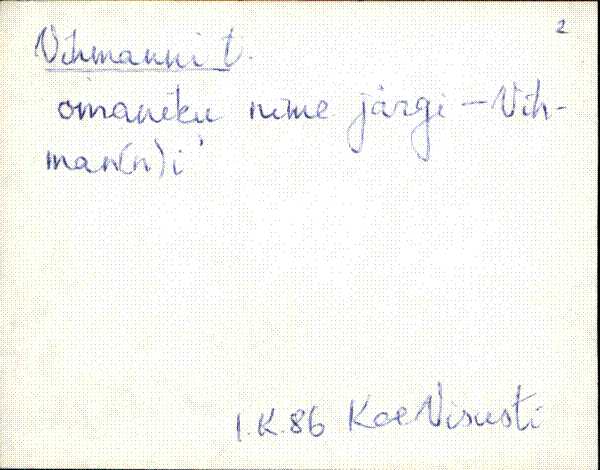 2
Vihmanni t.
omaniku nime järgi – Vih-
man(n)i
I.K.86 Koe Visusti